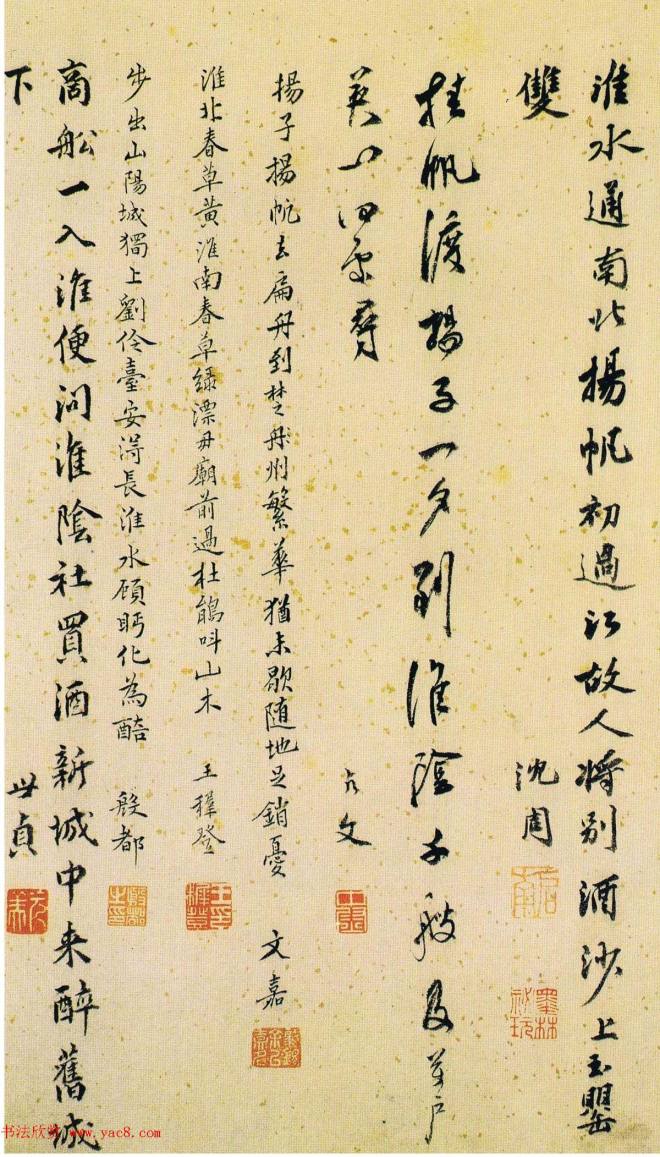 淮水通南北揚帆初過江故人將別酒沙上玉罌
雙
沈周
掛帆渡揚子一夕到淮陰千艘及萬戶
英
元文
揚子揚帆去扁舟到楚州繁華猶未歇随地足銷憂
文嘉
淮北春草黄淮南春草緑漂母廟前過杜鵑呌山木
王穉登
步出山陽城獨上劉伶臺安淂長淮水顧眄化為醅
殷都
商舩一入淮便问淮陰社買酒新城中来醉舊城
下
世貞
书法欣赏 www.yac8.com